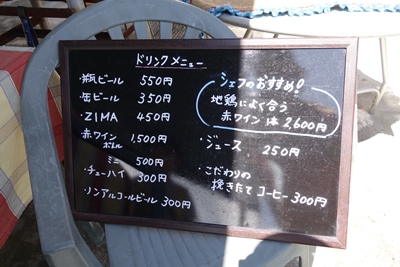 ドリンクメニュー
・瓶ビール 550円
・缶ビール 350円
・ZIMA 450円
・赤ワイン ボトル 1,500円
ミニ 500円
・チューハイ 300円
・ノンアルコールビール 300円
シェフのおすすめ!
地鶏によく合う
赤ワイン 1本 2,600円
・ジュース 250円
・こだわりの
挽きたてコーヒー 300円